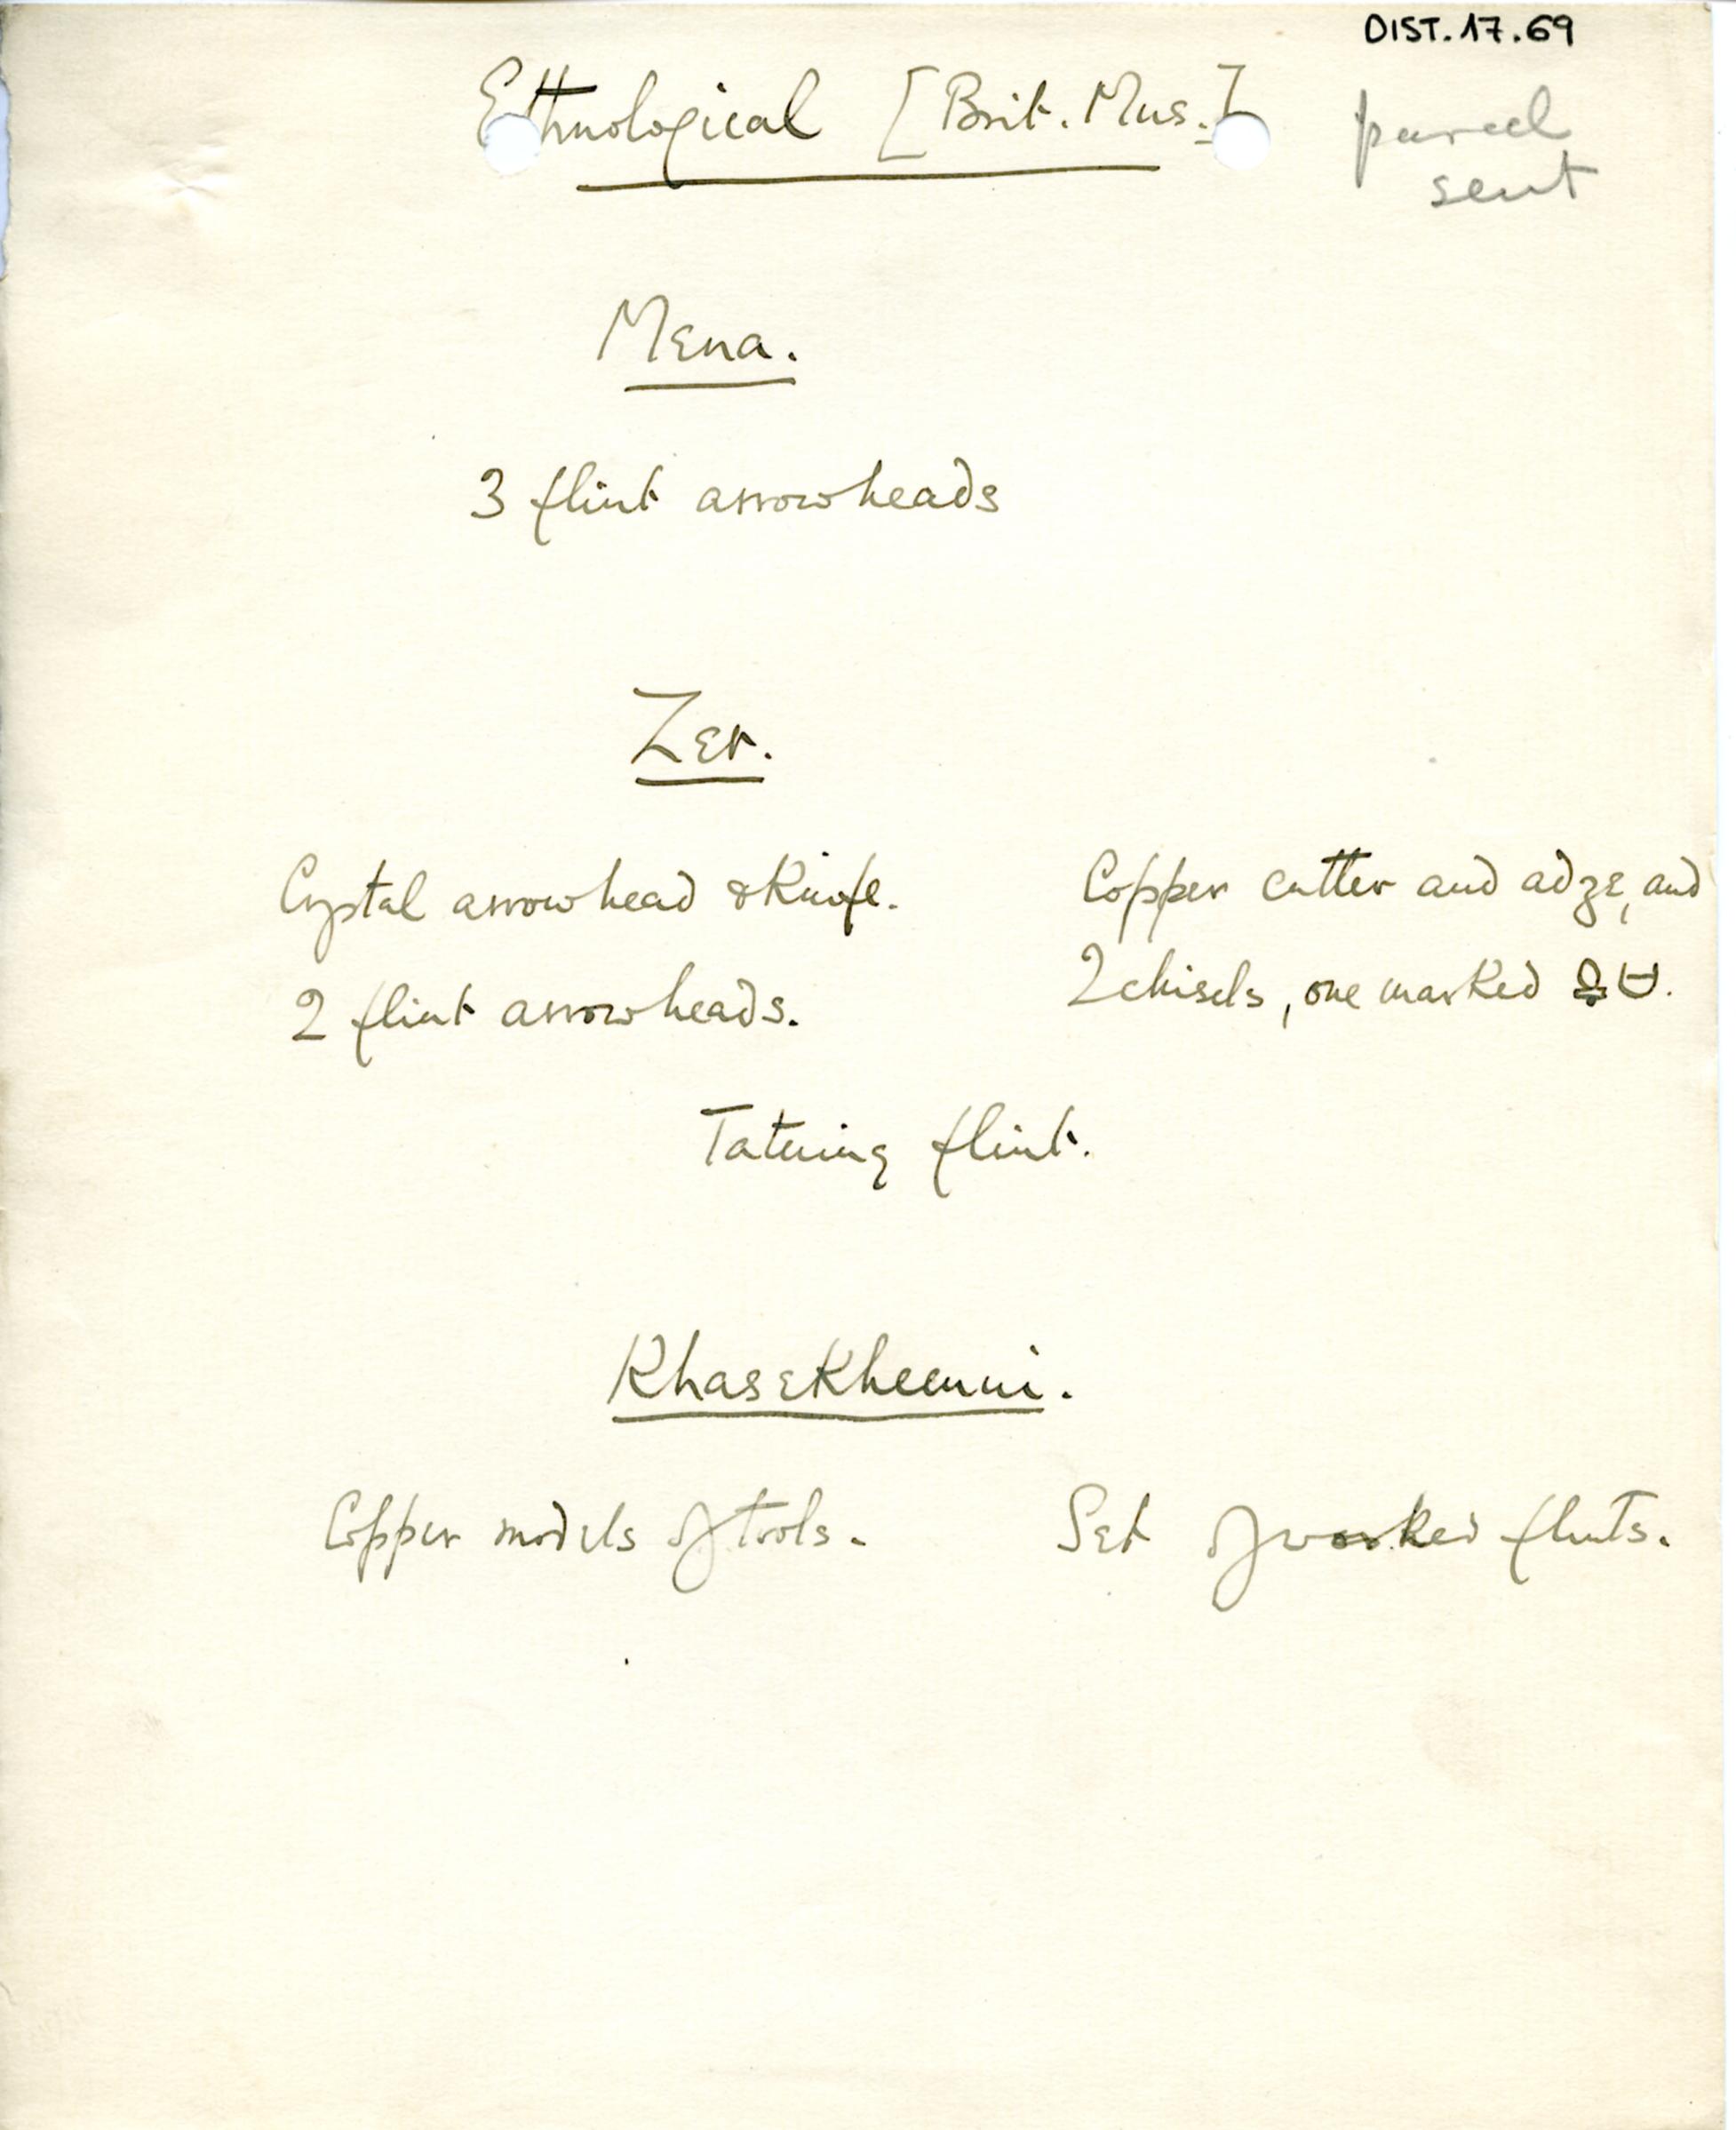 DIST.17.69
Ethnological [Brit. Mus.]
parcel
sent
Mena.
3 flint arrowheads
Zer.
Crystal arrowhead & Knife.
2 flint arrowheads.
Copper cutter and adze, and
2 chisels, one marked
Tatuing flint.
Khasekhemui.
Copper models of tools.
Set of worked flints.